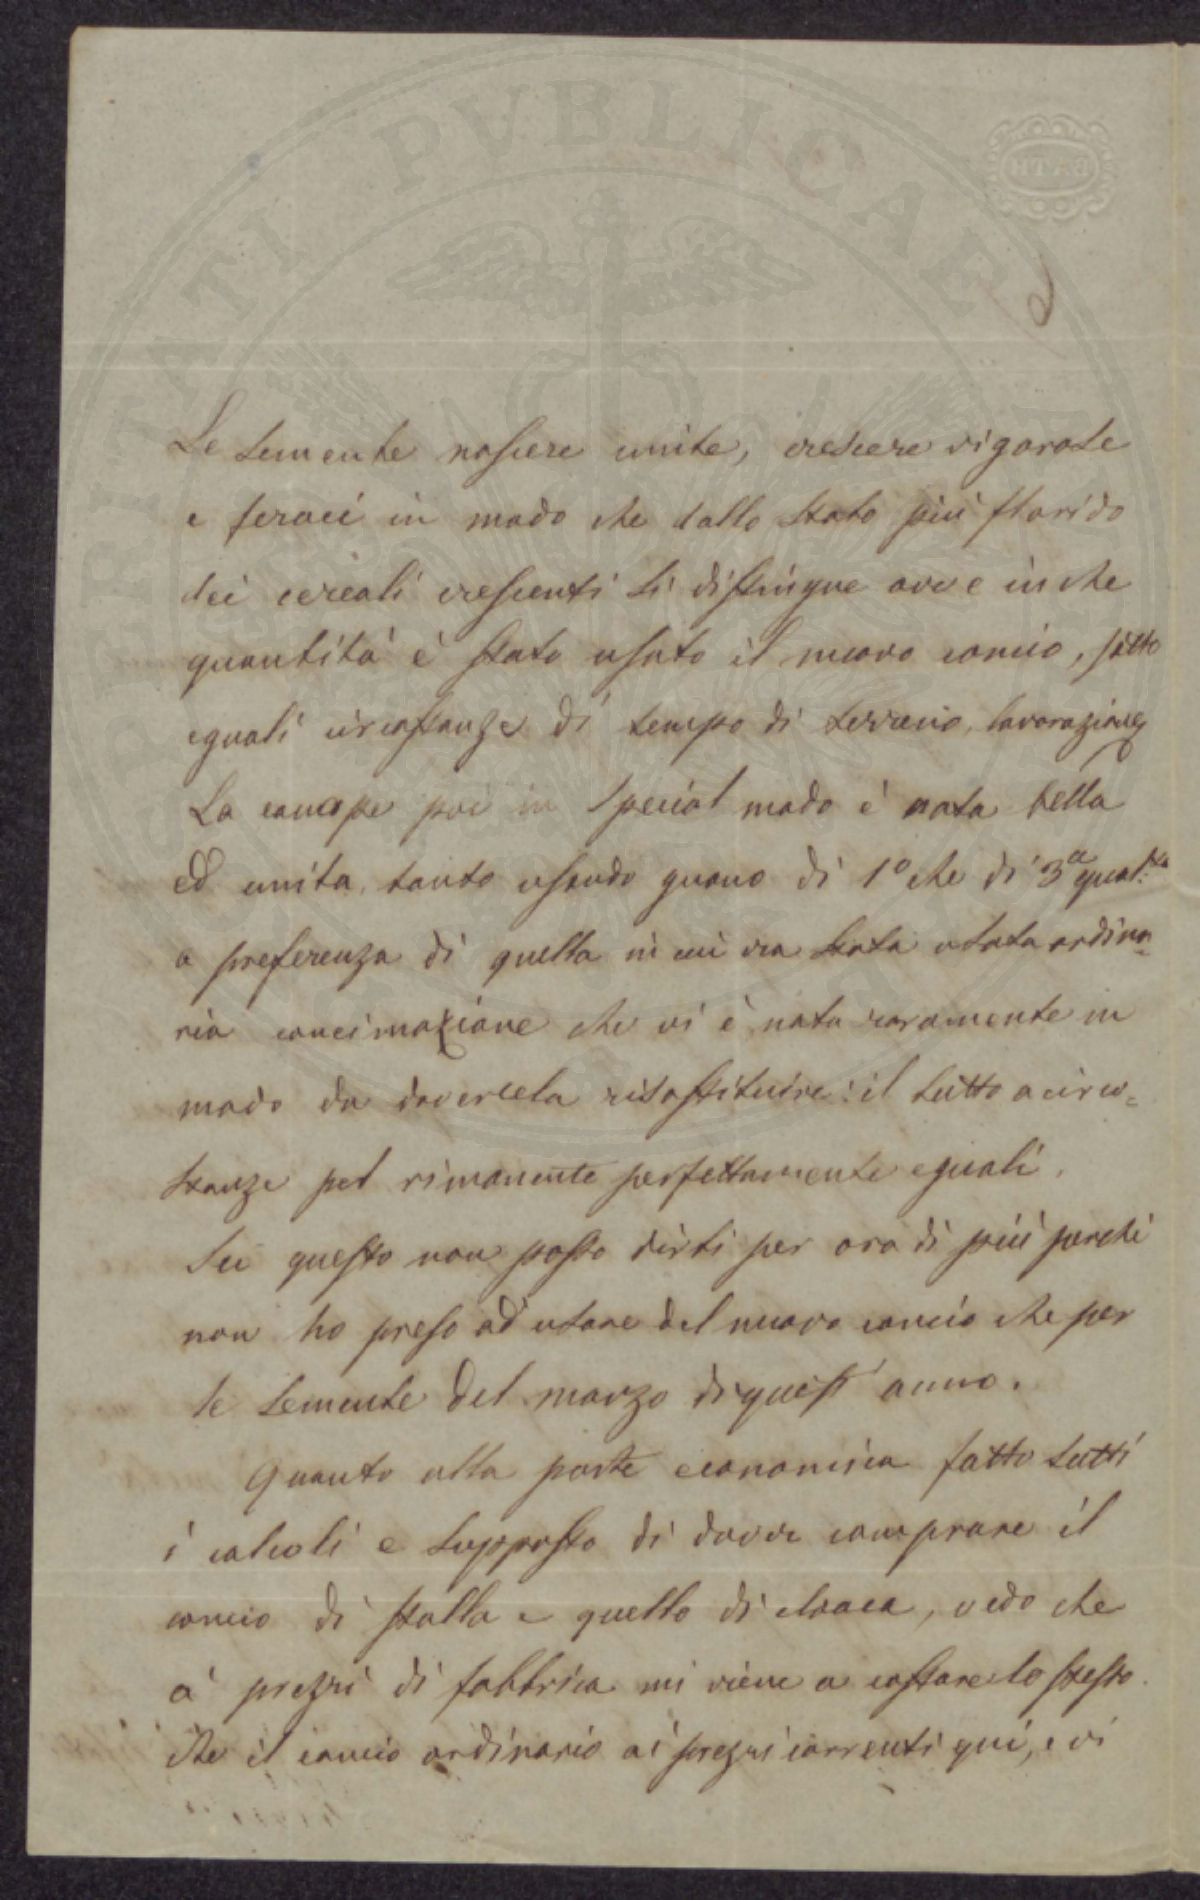 PROSPERITATI PVBLICAE
BATH
2
Le semente nascere unite, crescere vigorose
e feraci in modo che dallo stato più florido
dei cereali crescenti si distingue ove e in che
quantità è stato usato il nuovo concio, sotto
eguali circostanze di tempo di terreno, lavorazione
La canape poi in special modo è nata bella
ed unita, tanto usando guano di 1º che di 3ª qual.tà
a preferenza di quella in cui era stata usata ordina=
ria concimazione che vi è nata raramente in
modo da dovercela risostituire: il tutto a circo=
stanze pel rimanente perfettamente eguali.
Su questo non posso dirti per ora di più perchè
non ho preso ad usare del nuovo concio che per
le semente del marzo di quest'anno.
Quanto alla parte economica fatto tutti
i calcoli e supposto di dover comprare il
concio di stalla e quello di cloaca, vedo che
a' prezzi di fabbrica mi viene a costare lo stesso
che il concio ordinario ai prezzi correnti qui, e vi